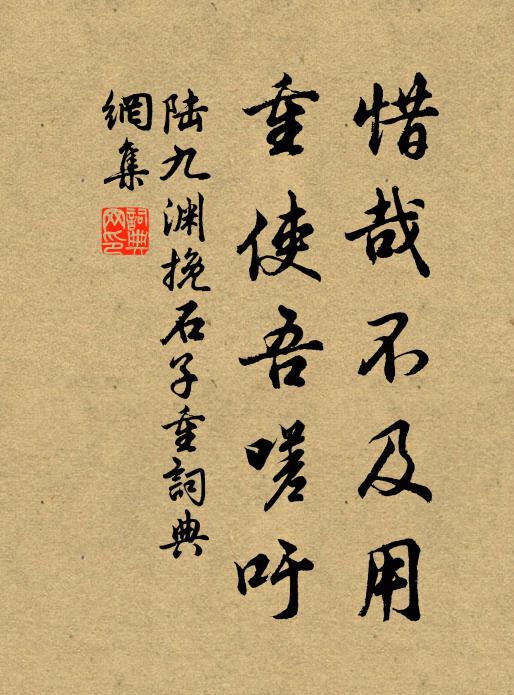 惜哉不及用
重使吾嗟吁
陆九渊挽石子重詞典
網集
詞典
网印